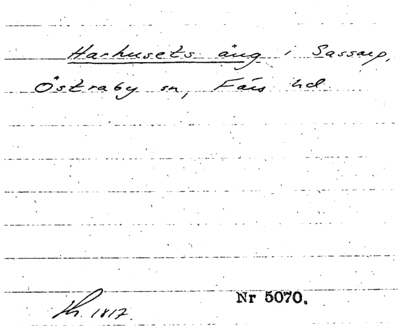 Harhusets äng i Sassarp,
Östraby sn, Färs hd
Nr 5070.
1817.